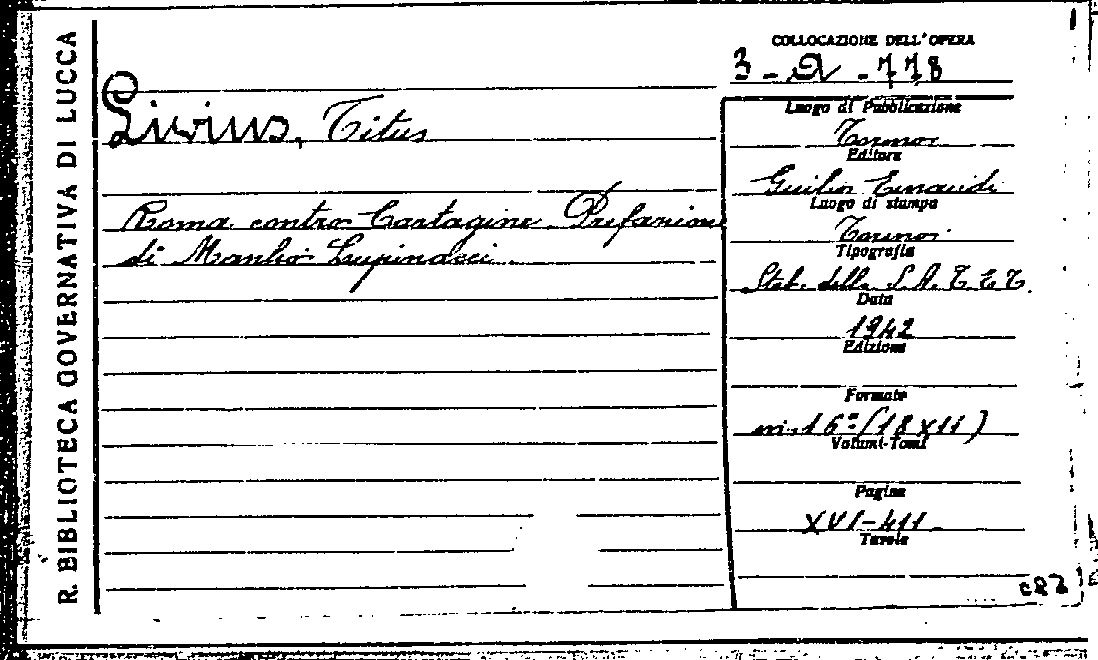 R. BIBLIOTECA GOVERNATIVA DI LUCCA
Livius, Titus
Roma contro Cartagine. Prefazione
di Manlio Lupinacci.
COLLOCAZIONE DELL'OPERA
778
Luogo di Pubblicazione
Torino.
Editore
Giulio Einaudi
Luogo di stampa
Torino.
Tipografia
Stab. della S.A.T.E.T.
Data
1942
Edizione
Formato
in-16º (18x11)
Volumi-Tomi
Pagine
XVI-411.
Tavole